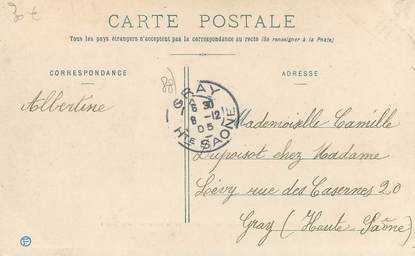 30 €
CARTE POSTALE
Tous les pays étrangers n'acceptent pas la correspondance au recto (Se renseigner à la Poste)
CORRESPONDANCE
ADRESSE
Albertine
GRAY
8 30
8 -12
05
Hte SAONE
Mademoiselle Camille
Dupoisot chez Madame
Lévy rue des Casernes 20
Gray (Haute Saône)